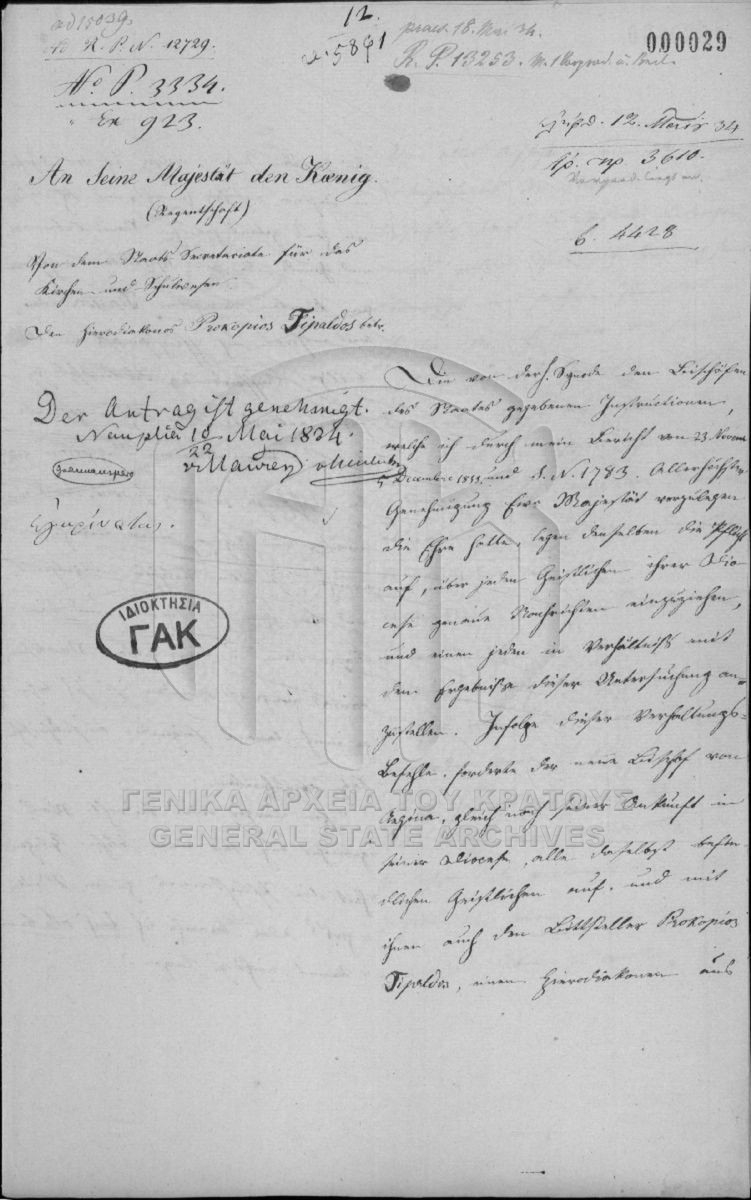 ad 15039.
No R. P. N. 12729.
No P. 3334.
923.
12.
5841
praes. 18. Mai 34.
R. P. 13253.
000029
12. 34
πρ. 3610.
b. 4428
An Seine Majestät den Kœnig.
(Regentschaft)
Von dem Staats Secretariate für das
Kirchen- und Schulwesen
Den Hierodiakonos Prokopios Tipaldos betr.
Der Antrag ist genehmigt.
Nauplia 10/22 Mai 1834.
v Maurer
ΙΔΙΟΚΤΗΣΙΑ
ΓΑΚ
Die von der h. Synode den Bischöfen
des Staates gegebenen Instructionen,
welche ich durch mein Bericht von 23 Novem
5 Decembre 1833, und d. N. 1783. Allerhöchster
Genehmigung Eurer Majestät vorzulegen
die Ehre hatte, legen denselben die Pflicht
auf, über jeden Geistlichen ihrer Diö-
cese genaue Nachrichten einzuziehen,
und einen jeden in Verhältniss mit
dem Ergebnisse dieser Untersuchung an-
zustellen. Infolge dieser Verhaltungs-
Befehle, forderte der neue Bischof von
Aegina, gleich nach seiner Ankunft in
seiner Diöcese, alle daselbst befin-
dlichen Geistlichen auf, und mit
ihnen auch den Bittsteller Prokopios
Tipaldos, einen Hierodiakonen aus
ΓΕΝΙΚΑ ΑΡΧΕΙΑ ΤΟΥ ΚΡΑΤΟΥΣ
GENERAL STATE ARCHIVES